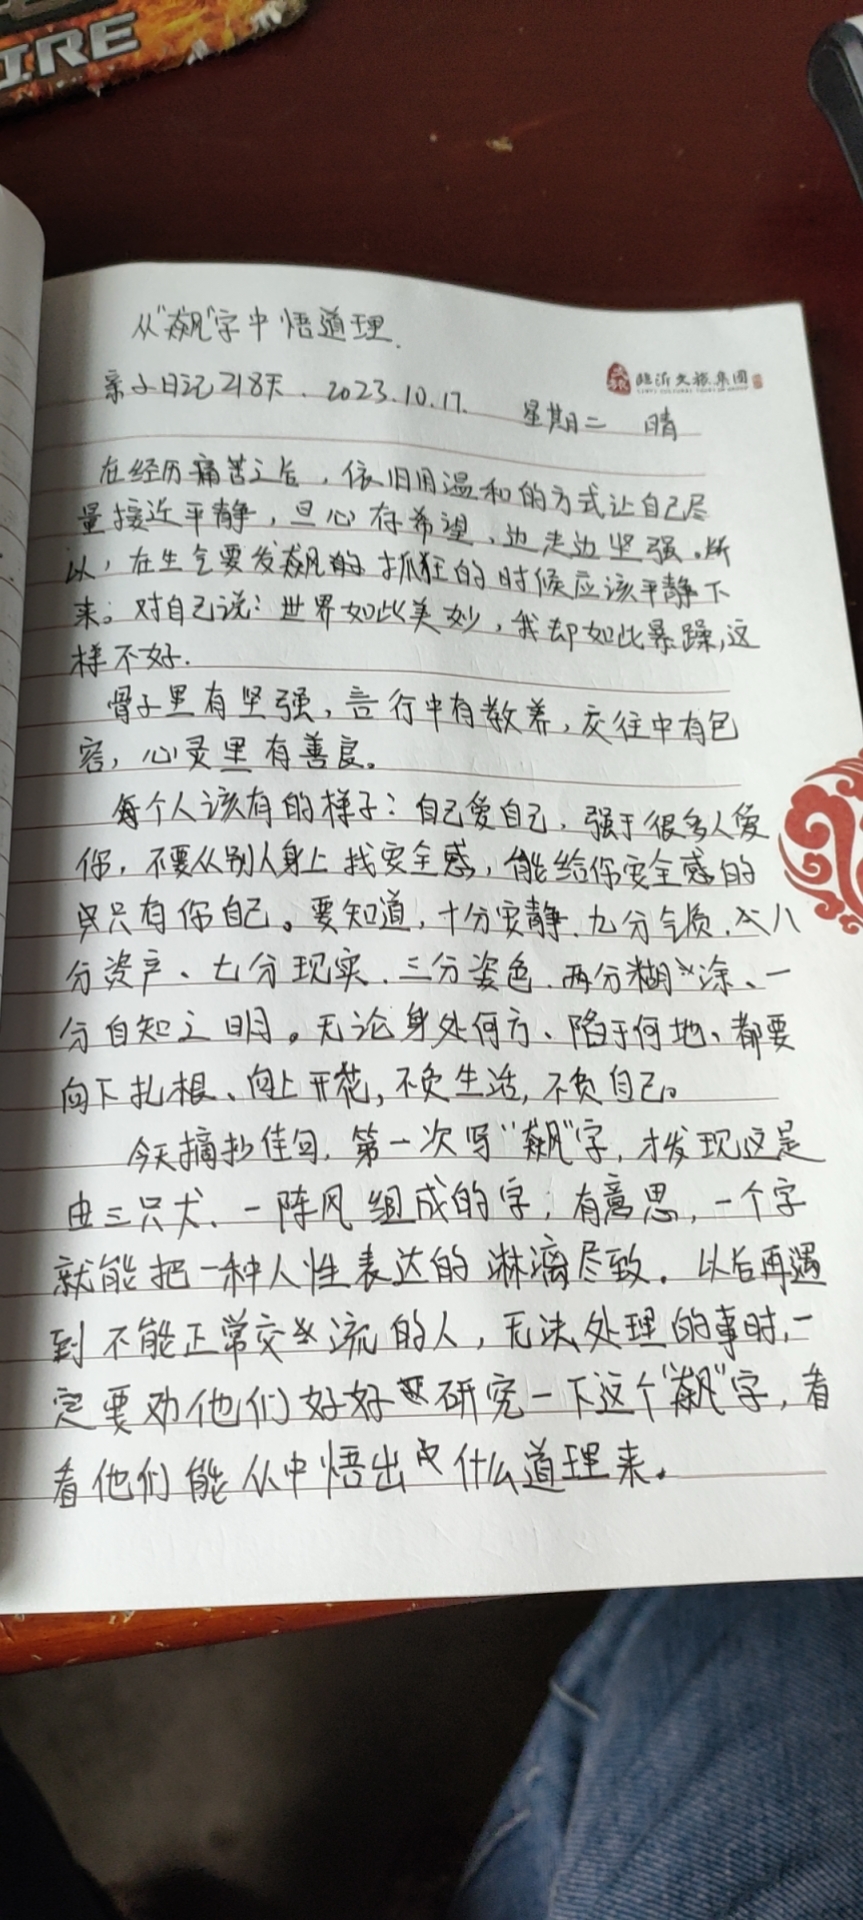 IRE
从“飙”字中悟道理.
临沂文旅集团
亲子日记218天. 2023.10.17. 星期二 晴
在经历痛苦之后，依旧用温和的方式让自己尽
量接近平静，且心存希望、边走边坚强。所
以，在生气要发飙的抓狂的时候应该平静下
来。对自己说：世界如此美妙，我却如此暴躁，这
样不好.
骨子里有坚强，言行中有教养，交往中有包
容，心灵里有善良。
每个人该有的样子：自己爱自己，强于很多人爱
你，不要从别人身上找安全感，能给你安全感的
只有你自己。要知道，十分安静、九分气质、八
分资产、七分现实、三分姿色、两分糊涂、一
分自知之明。无论身处何方、陷于何地、都要
向下扎根、向上开花，不负生活，不负自己。
今天摘抄佳句，第一次写“飙”字，才发现这是
由三只犬、一阵风组成的字，有意思，一个字
就能把一种人性表达的淋漓尽致。以后再遇
到不能正常交流的人，无法处理的事时，一
定要劝他们好好研究一下这个“飙”字，看
看他们能从中悟出点什么道理来。